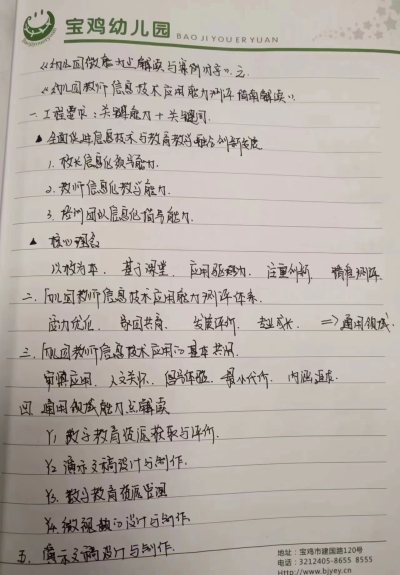 宝鸡幼儿园
BAO JI YOU ER YUAN
《幼儿园微能力点解读与案例分享》之
《幼儿园教师信息技术应用能力测评指南解读》
一. 工程需求：关键能力＋关键问
▲ 全面促进信息技术与教育教学融合创新发展
1. 校长信息化领导能力.
2. 教师信息化教学能力.
3. 培训团队信息化指导能力.
▲ 核心理念
以校为本. 基于课堂. 应用驱动. 注重创新. 精准测评.
二. 幼儿园教师信息技术应用能力测评体系.
能力优化. 家园共育. 发展评价. 专业成长. ⇒ 通用领域.
三. 幼儿园教师信息技术应用的基本共识.
审慎应用. 人文关怀. 倡导体验. 最小代价. 内涵适度.
四. 通用领域能力点解读
Y1 数字教育资源获取与评价.
Y2 演示文稿设计与制作.
Y3. 数字教育资源管理
Y4. 微视频的设计与制作.
五. 演示文稿设计与制作.
地址：宝鸡市建国路120号
电话：3212405-8655 8555
Http://www.bjyey.cn